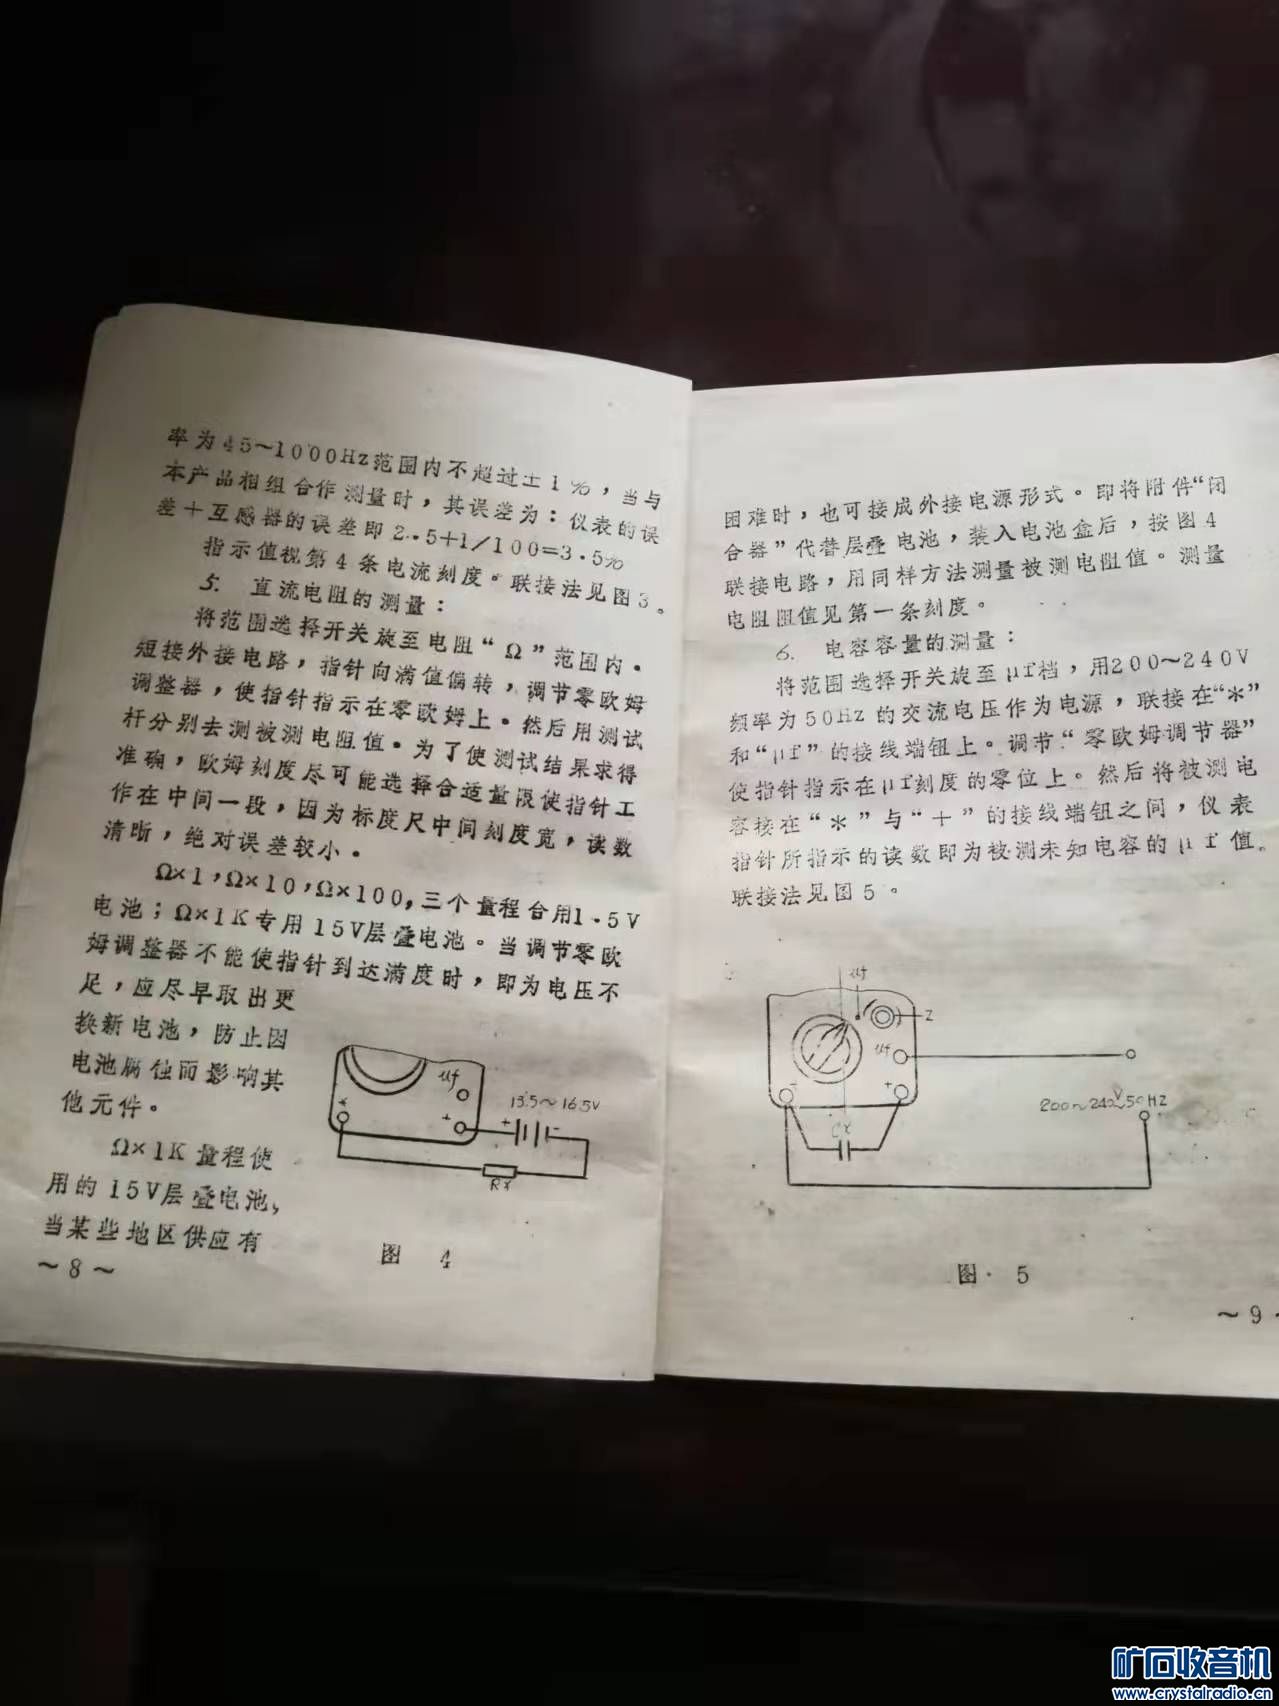 率为45～1000Hz范围内不超过±1％，当与
本产品相组合作测量时，其误差为：仪表的误
差＋互感器的误差即2.5+1/100=3.5％
指示值视第4条电流刻度。联接法见图3。
5. 直流电阻的测量：
将范围选择开关旋至电阻“Ω”范围内。
短接外接电路，指针向满值偏转，调节零欧姆
调整器，使指针指示在零欧姆上。然后用测试
杆分别去测被测电阻值。为了使测试结果求得
准确，欧姆刻度尽可能选择合适量限使指针工
作在中间一段，因为标度尺中间刻度宽，读数
清晰，绝对误差较小。
Ω×1，Ω×10，Ω×100,三个量程合用1.5V
电池；Ω×1K专用15V层叠电池。当调节零欧
姆调整器不能使指针到达满度时，即为电压不
足，应尽早取出更
换新电池，防止因
电池腐蚀而影响其
他元件。
Ω×1K量程使
用的15V层叠电池，
当某些地区供应有
μf
*
+
13.5～16.5V
+
-
Rx
图 4
～8～
困难时，也可接成外接电源形式。即将附件“闭
合器”代替层叠电池，装入电池盒后，按图4
联接电路，用同样方法测量被测电阻值。测量
电阻阻值见第一条刻度。
6. 电容容量的测量：
将范围选择开关旋至μf档，用200～240V
频率为50Hz的交流电压作为电源，联接在“＊”
和“μf”的接线端钮上。调节“零欧姆调节器”
使指针指示在μf刻度的零位上。然后将被测电
容接在“＊”与“＋”的接线端钮之间，仪表
指针所指示的读数即为被测未知电容的μf值。
联接法见图5。
μf
Z
μf
-
+
Cx
200～240V50HZ
图. 5
～9～
矿石收音机
www.crystalradio.cn